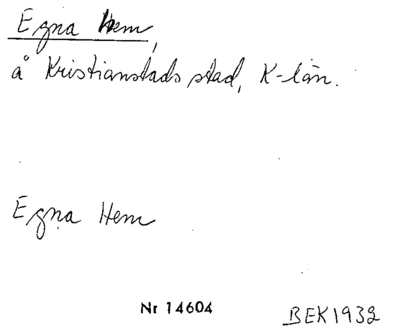 Egna Hem,
å Kristianstads stad, K-län.
Egna Hem
Nr 14604
BEK1932